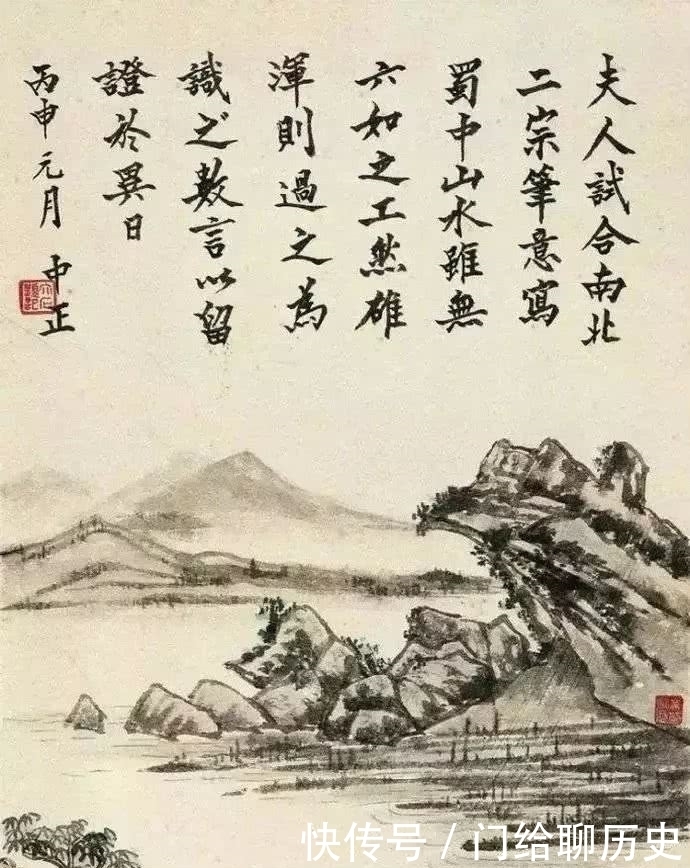 夫人試合南北
二宗筆意寫
蜀中山水雖無
六如之工然雄
渾則過之為
識此數言以留
證於異日
丙申元月 中正
快传号 / 门给聊历史